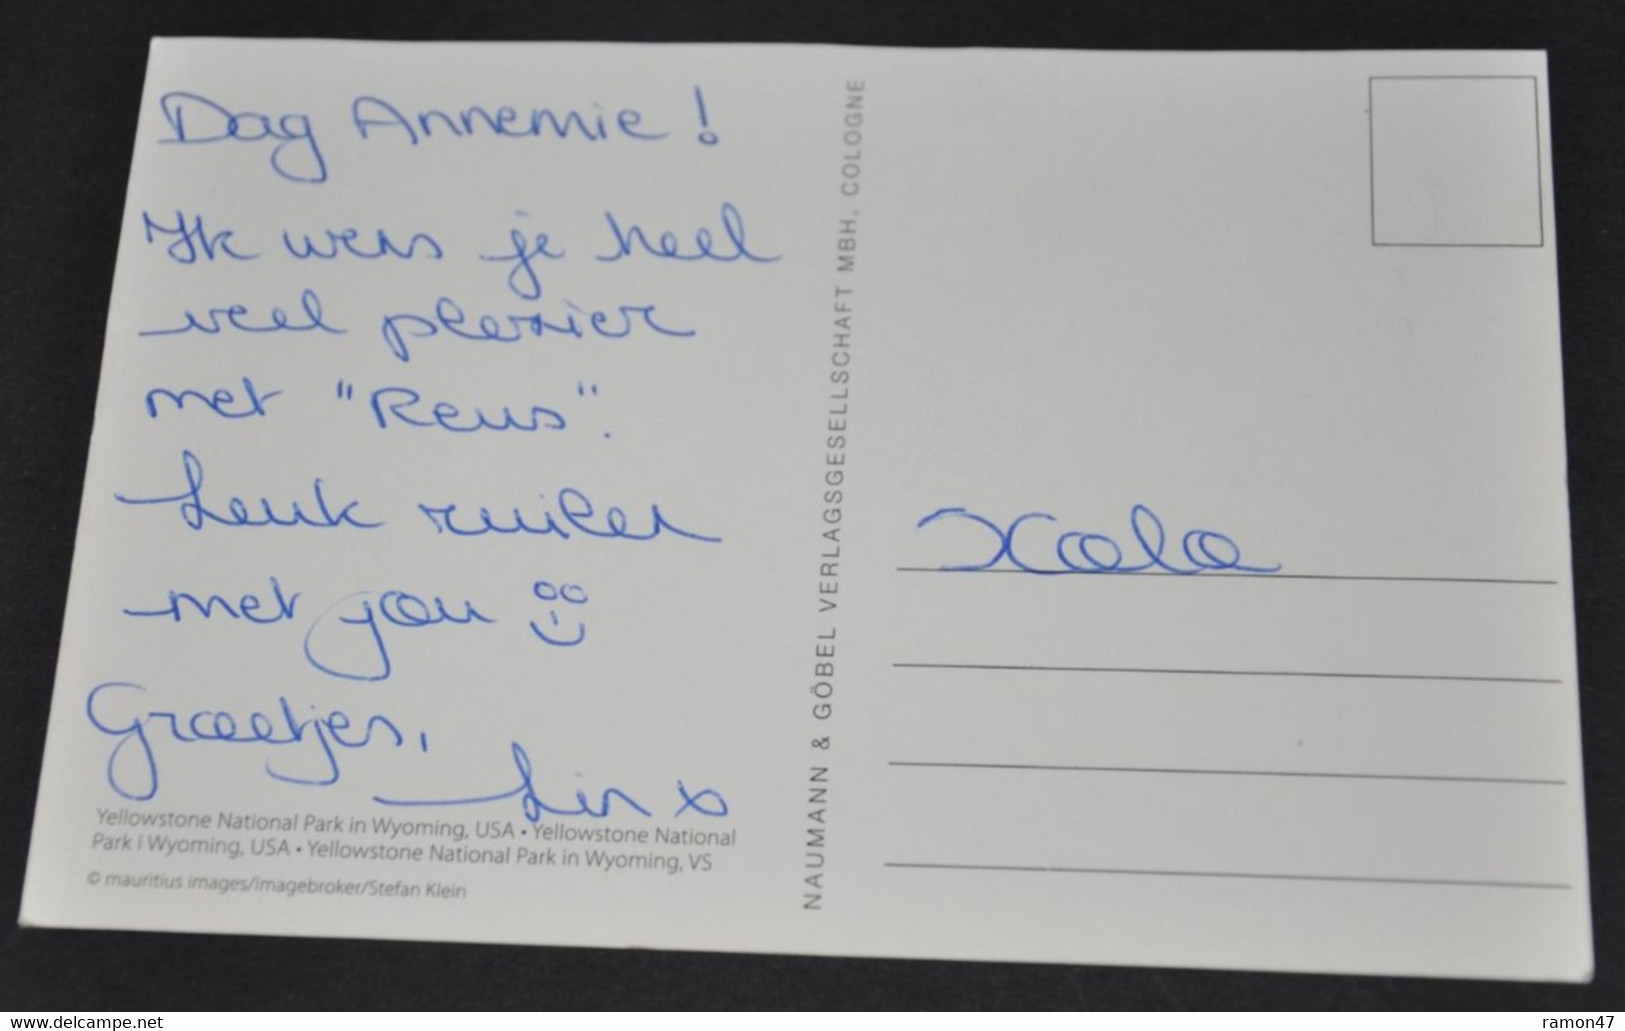 Dag Annemie!
Ik wens je heel
veel plezier
met "Reus".
Leuk ruilen
met jou
Groetjes,
Lin x
Yellowstone National Park in Wyoming, USA • Yellowstone National
Park i Wyoming, USA • Yellowstone National Park in Wyoming, VS
© mauritius images/imagebroker/Stefan Klein
NAUMANN & GÖBEL VERLAGSGESELLSCHAFT MBH, COLOGNE
delcampe.net
ramon47